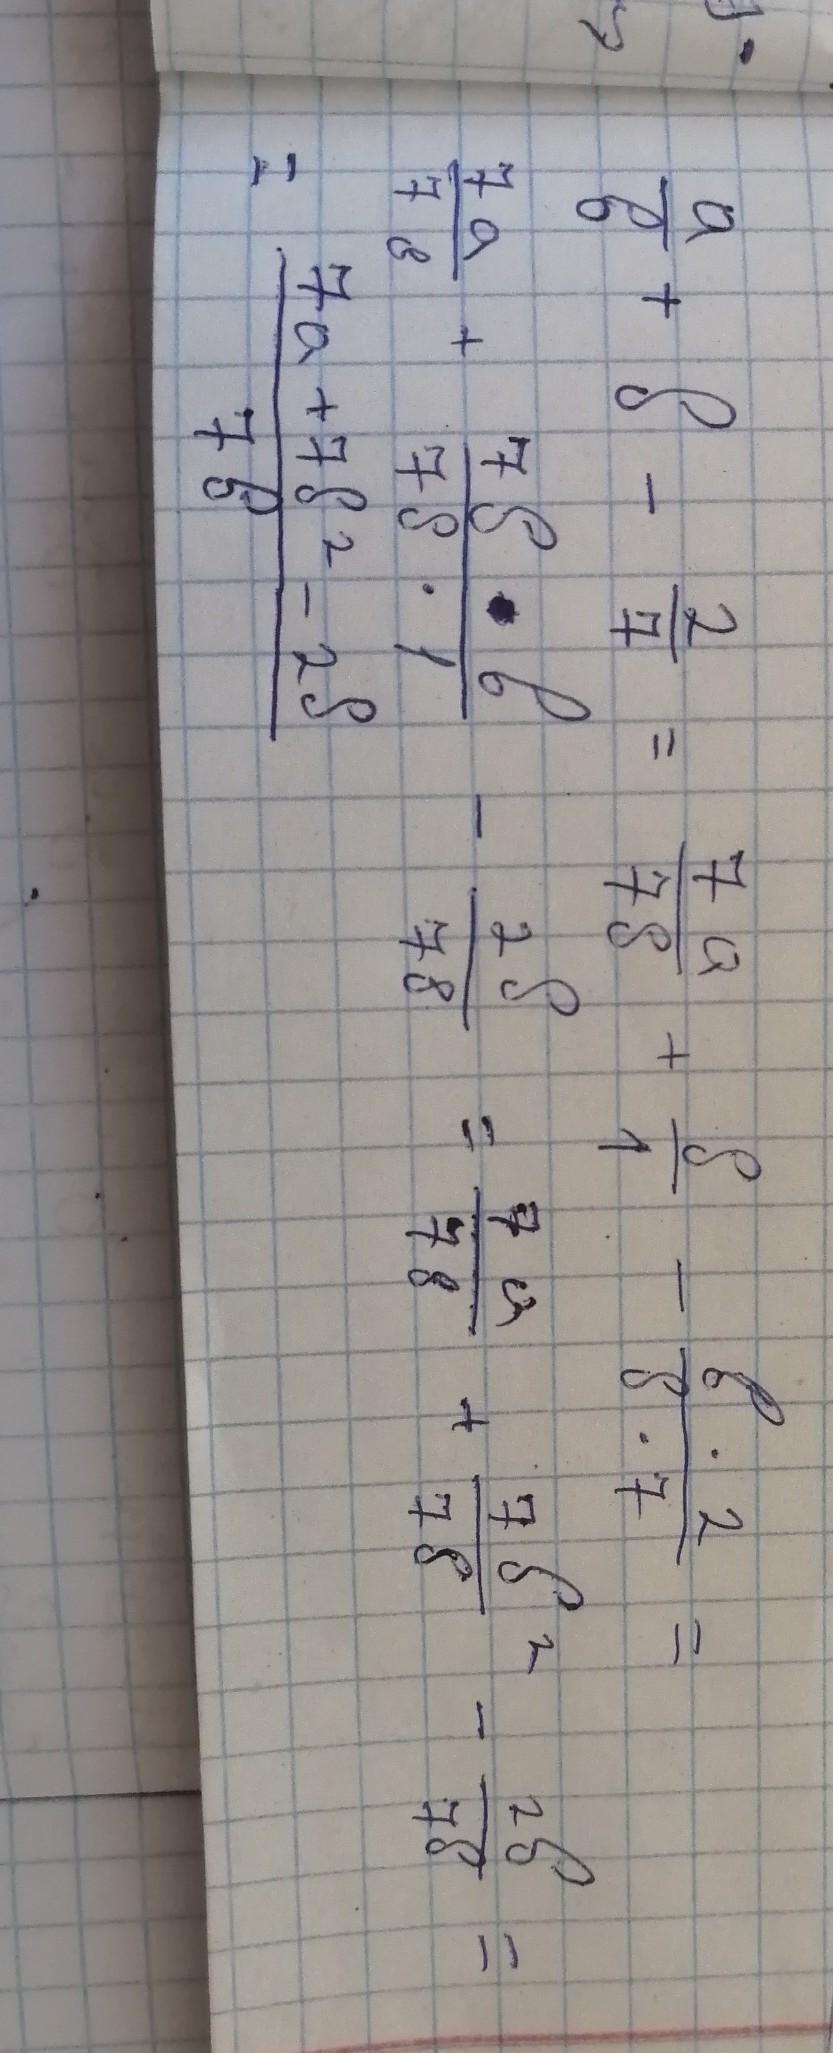 a/b + b - 2/7 = 7a/7b + b/1 - b·2/b·7 =
7a/7b + 7b·b/7b·1 - 2b/7b = 7a/7b + 7b²/7b - 2b/7b =
= 7a+7b²-2b/7b